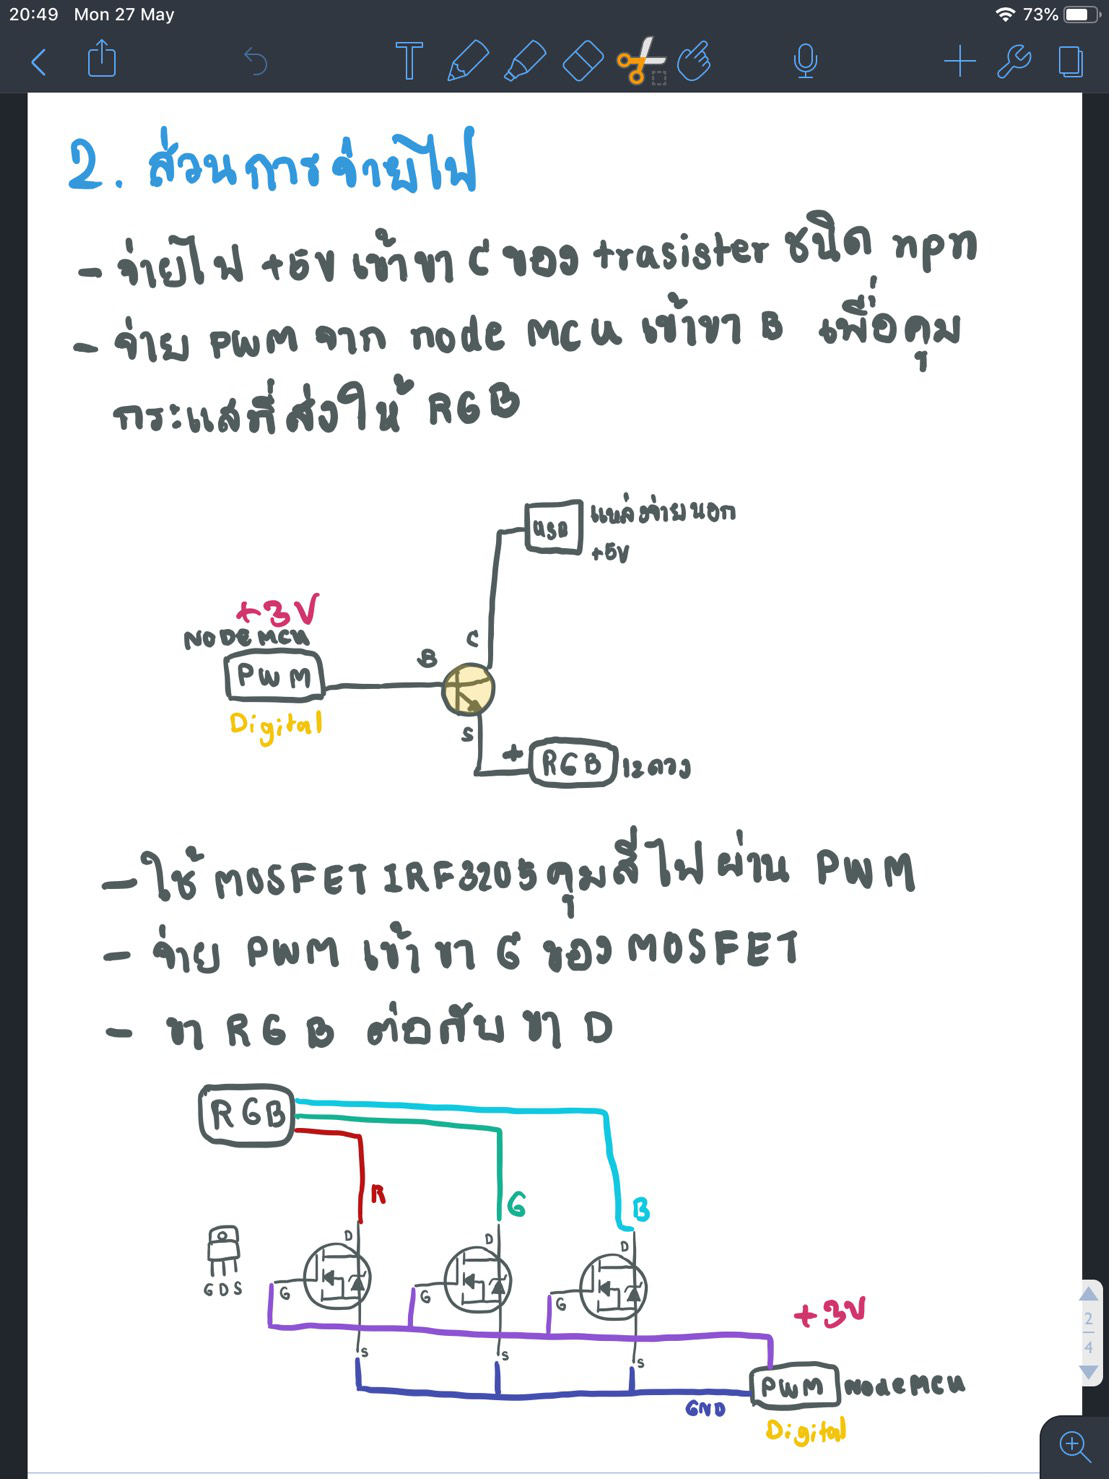 20:49 Mon 27 May
73%
2. ส่วนการจ่ายไฟ
- จ่ายไฟ +5V เข้าขา C ของ trasister ชนิด npn
- จ่าย PWM จาก node MCU เข้าขา B เพื่อคุม
กระแสที่ส่งให้ RGB
USB
แหล่งจ่ายนอก
+5V
+3V
NODE MCU
PWM
Digital
B
C
S
+
RGB
12 ดวง
- ใช้ MOSFET IRF3205 คุมสีไฟผ่าน PWM
- จ่าย PWM เข้า ขา G ของ MOSFET
- ขา RGB ต่อกับ ขา D
RGB
R
G
B
D
D
D
G
G
G
G D S
S
S
S
+3V
PWM
Node MCU
GND
Digital
2
4